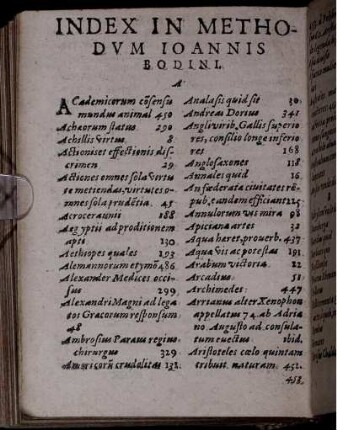 INDEX IN METHO-
DVM IOANNIS
BODINI.
A
ACademicorum cōsensu
mundus animal 450
Achaorum status 290
Achillis virtus 8
Actionis et effectionis dis-
crimen 29
Actiones omnes sola virtu
te metiendas, virtutes o-
mnes sola prudētia. 45
Acroceraunis 188
Aegyptii ad proditionem
apti 130
Aethiopes quales 193
Alemannorum etymō 486
Alexander Medices occi-
sus 299
Alexandri Magni ad lega
tos Græcorum responsum
48
Ambrosius Paræus regius
chirurgus 329
Americorū crudelitas 132
Analysis quid sit 30
Andreas Dorius 341
Angli virib. Gallis superio
res, consilio longe inferio
res 168
Anglosaxones 118
Annales quid 16
An fœderata ciuitates rē-
pub. eandem efficiant 225
Annulorum vis mira 98
Apiciana artes 32
Aqua heret, prouerb. 437
Aqua vis ac potestas 191
Arabum victoria 22
Arcadius 51
Archimedes 447
Arrianus alter Xenophon
appellatus 74. ab Adria
no Augusto ad consula-
tum euectus ibid.
Aristoteles cœlo quintam
tribuit naturam. 452.
458.